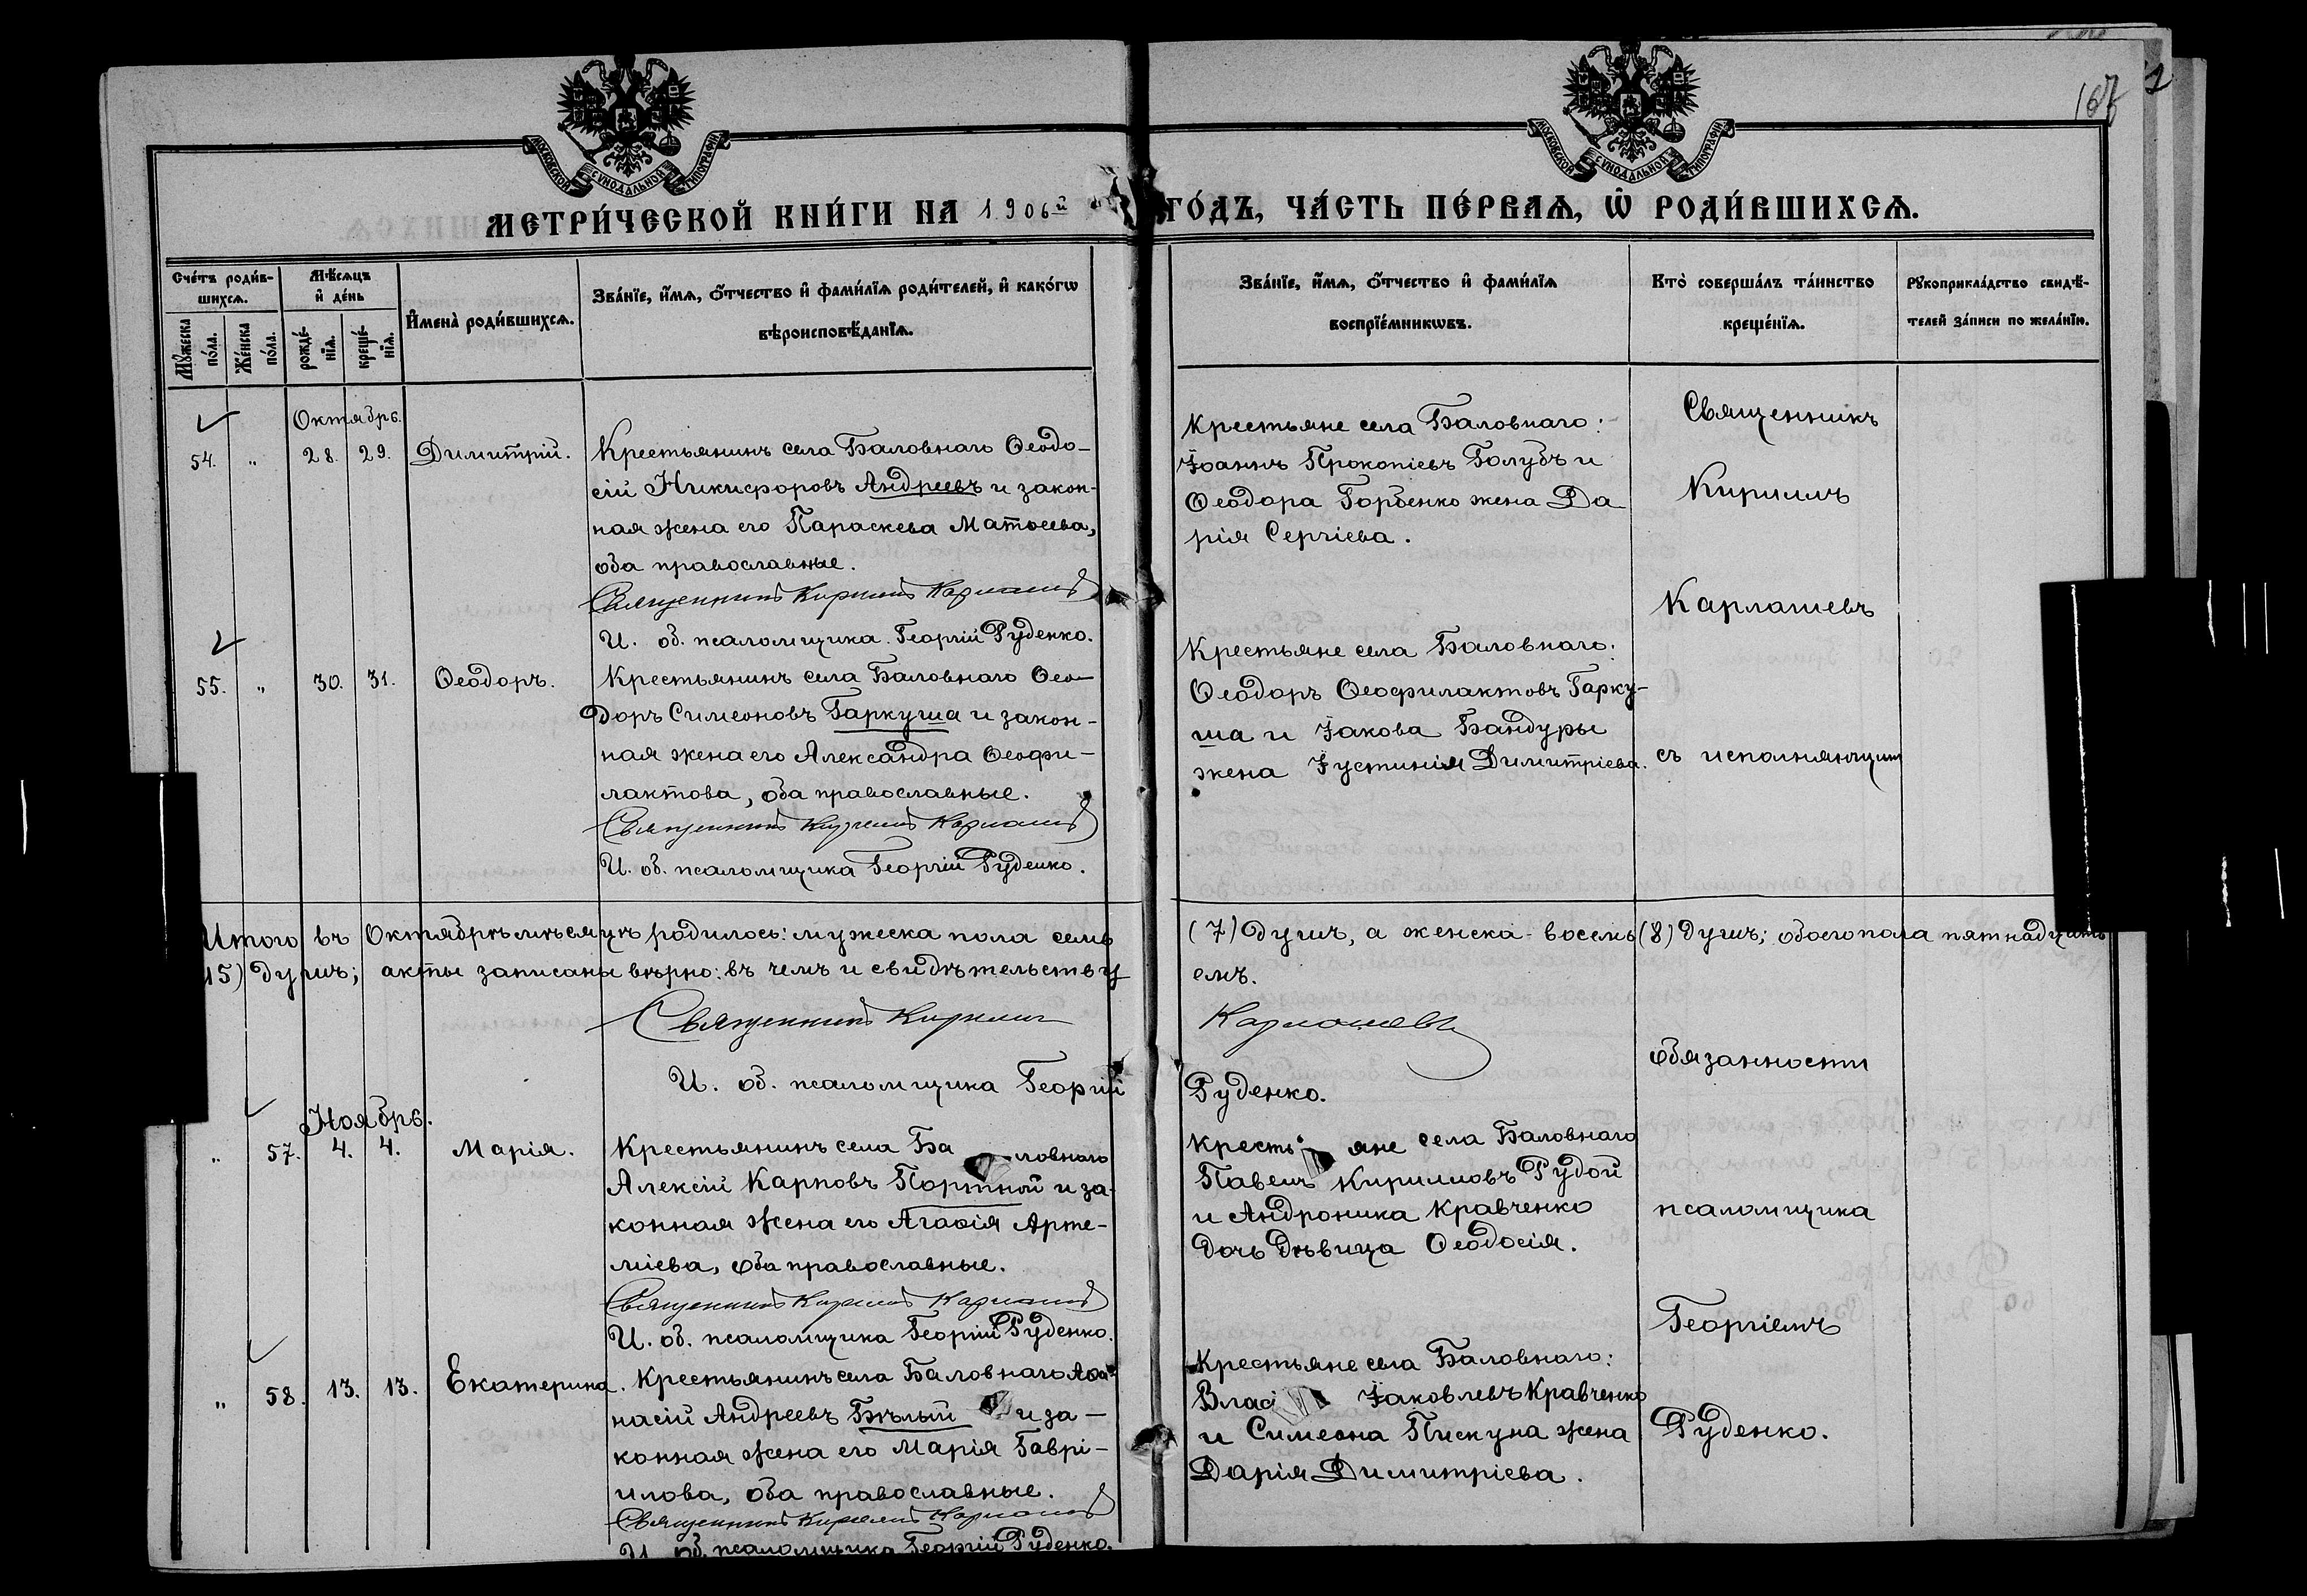 167
МОСКОВСКОЙ СУНОДАЛЬНОЙ ТИПОГРАФІИ
МОСКОВСКОЙ СУНОДАЛЬНОЙ ТИПОГРАФІИ
МЕТРИ́ЧЕСКОЙ КНИ́ГИ НА 1906й ГО́ДЪ, ЧА́СТЬ ПЕ́РВАѦ, Ѡ҆ РОДИ́ВШИХСѦ.
Сче́тъ роди́в-
шихсѧ.
Мꙋ́жеска по́ла.
Же́нска по́ла.
Мѣ́сѧцъ
и҆ де́нь
рожде́-
нїѧ.
креще́-
нїѧ.
И҆мена̀ роди́вшихсѧ.
Зва́нїе, и҆́мѧ, ѻ҆́тчество и҆ фами́лїѧ роди́телей, и҆ како́гѡ
вѣроисповѣ́данїѧ.
Зва́нїе, и҆́мѧ, ѻ҆́тчество и҆ фами́лїѧ
воспрїе́мникѡвъ.
Кто̀ соверша́лъ та́инство
креще́нїѧ.
Рꙋкоприкла́дство свидѣ́-
телей за́писи по жела́нїю.
Октябрь.
54. „ 28. 29. Димитрій.
Крестьянинъ села Баловнаго Ѳеодо-
сій Никифоровъ Андреевъ и закон-
ная жена его Параскева Матѳеева,
оба православные.
Священникъ Кириллъ Карлашевъ
И. об. псаломщика Георгій Руденко.
Крестьяне села Баловнаго:
Іоаннъ Прокопіевъ Голубъ и
Ѳеодора Горбенко жена Да
рія Сергіева.
Священникъ
Кириллъ
Карлашевъ
55. „ 30. 31. Ѳеодоръ.
Крестьянинъ села Баловнаго Ѳео-
доръ Симеоновъ Гаркуша и закон-
ная жена его Александра Ѳеофи-
лактова, оба православные.
Священникъ Кириллъ Карлашевъ
И. об. псаломщика Георгій Руденко.
Крестьяне села Баловнаго:
Ѳеодоръ Ѳеофилактовъ Гарку-
ша и Іакова Бандуры
жена Іустинія Димитріева.
съ исполняющим
Итого въ Октябрѣ мѣсяцѣ родилось: мужеска пола семь (7) душъ, а женска - восемь (8) душъ; обоего пола пятнадцать
15) душъ; акты записаны вѣрно: въ чемъ и свидѣтельству
емъ.
Священникъ Кириллъ Карлашевъ
И. об. псаломщика Георгій Руденко.
обязанности
Ноябрь.
„ 57. 4. 4. Марія.
Крестьянинъ села Ба ловнаго
Алексій Карповъ Портной и за-
конная жена его Агаѳія Арте-
міева, оба православные.
Священникъ Кириллъ Карлашевъ
И. об. псаломщика Георгій Руденко.
Кресть яне села Баловнаго
Павелъ Кирилловъ Рудой
и Андроника Кравченко
дочь дѣвица Ѳеодосія.
псаломщика
Георгіемъ
„ 58. 13. 13. Екатерина.
Крестьянинъ села Баловнаго Аѳа-
насій Андреевъ Бѣлый и за-
конная жена его Марія Гаврі-
илова, оба православные.
Священникъ Кириллъ Карлашевъ
И. об. псаломщика Георгій Руденко.
Крестьяне села Баловнаго:
Власі Іаковлевъ Кравченко
и Симеона Пискуна жена
Дарія Димитріева.
Руденко.